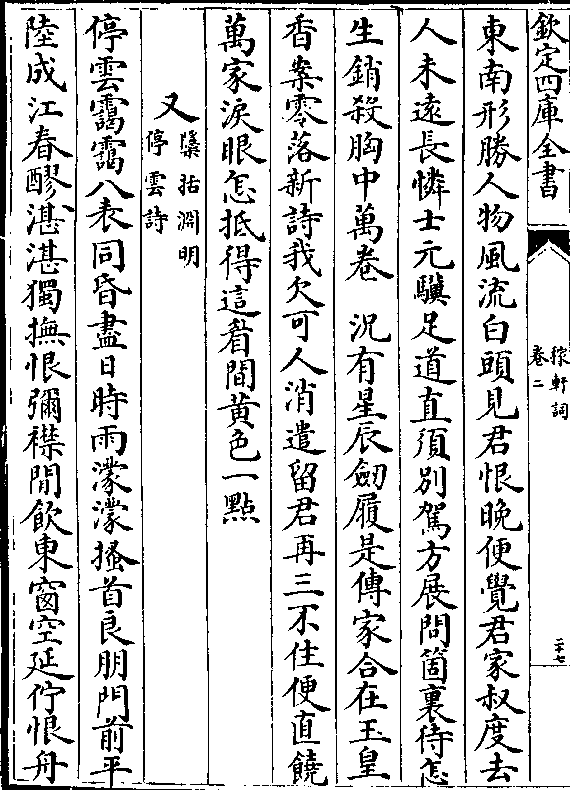 欽定四庫全書
稼軒詞
卷二
二十七
東南形勝人物風流白頭見君恨晚便覺君家叔度去
人未遠長憐士元驥足道直須別駕方展問箇裏待怎
生銷殺胸中萬卷 況有星辰劒履是傳家合在玉皇
香案零落新詩我欠可人消遣留君再三不住便直饒
萬家淚眼怎抵得這眉間黃色一點
又
櫽括淵明
停雲詩
停雲靄靄八表同昏盡日時雨濛濛搔首良朋門前平
陸成江春醪湛湛獨撫恨彌襟閒飲東窗空延佇恨舟